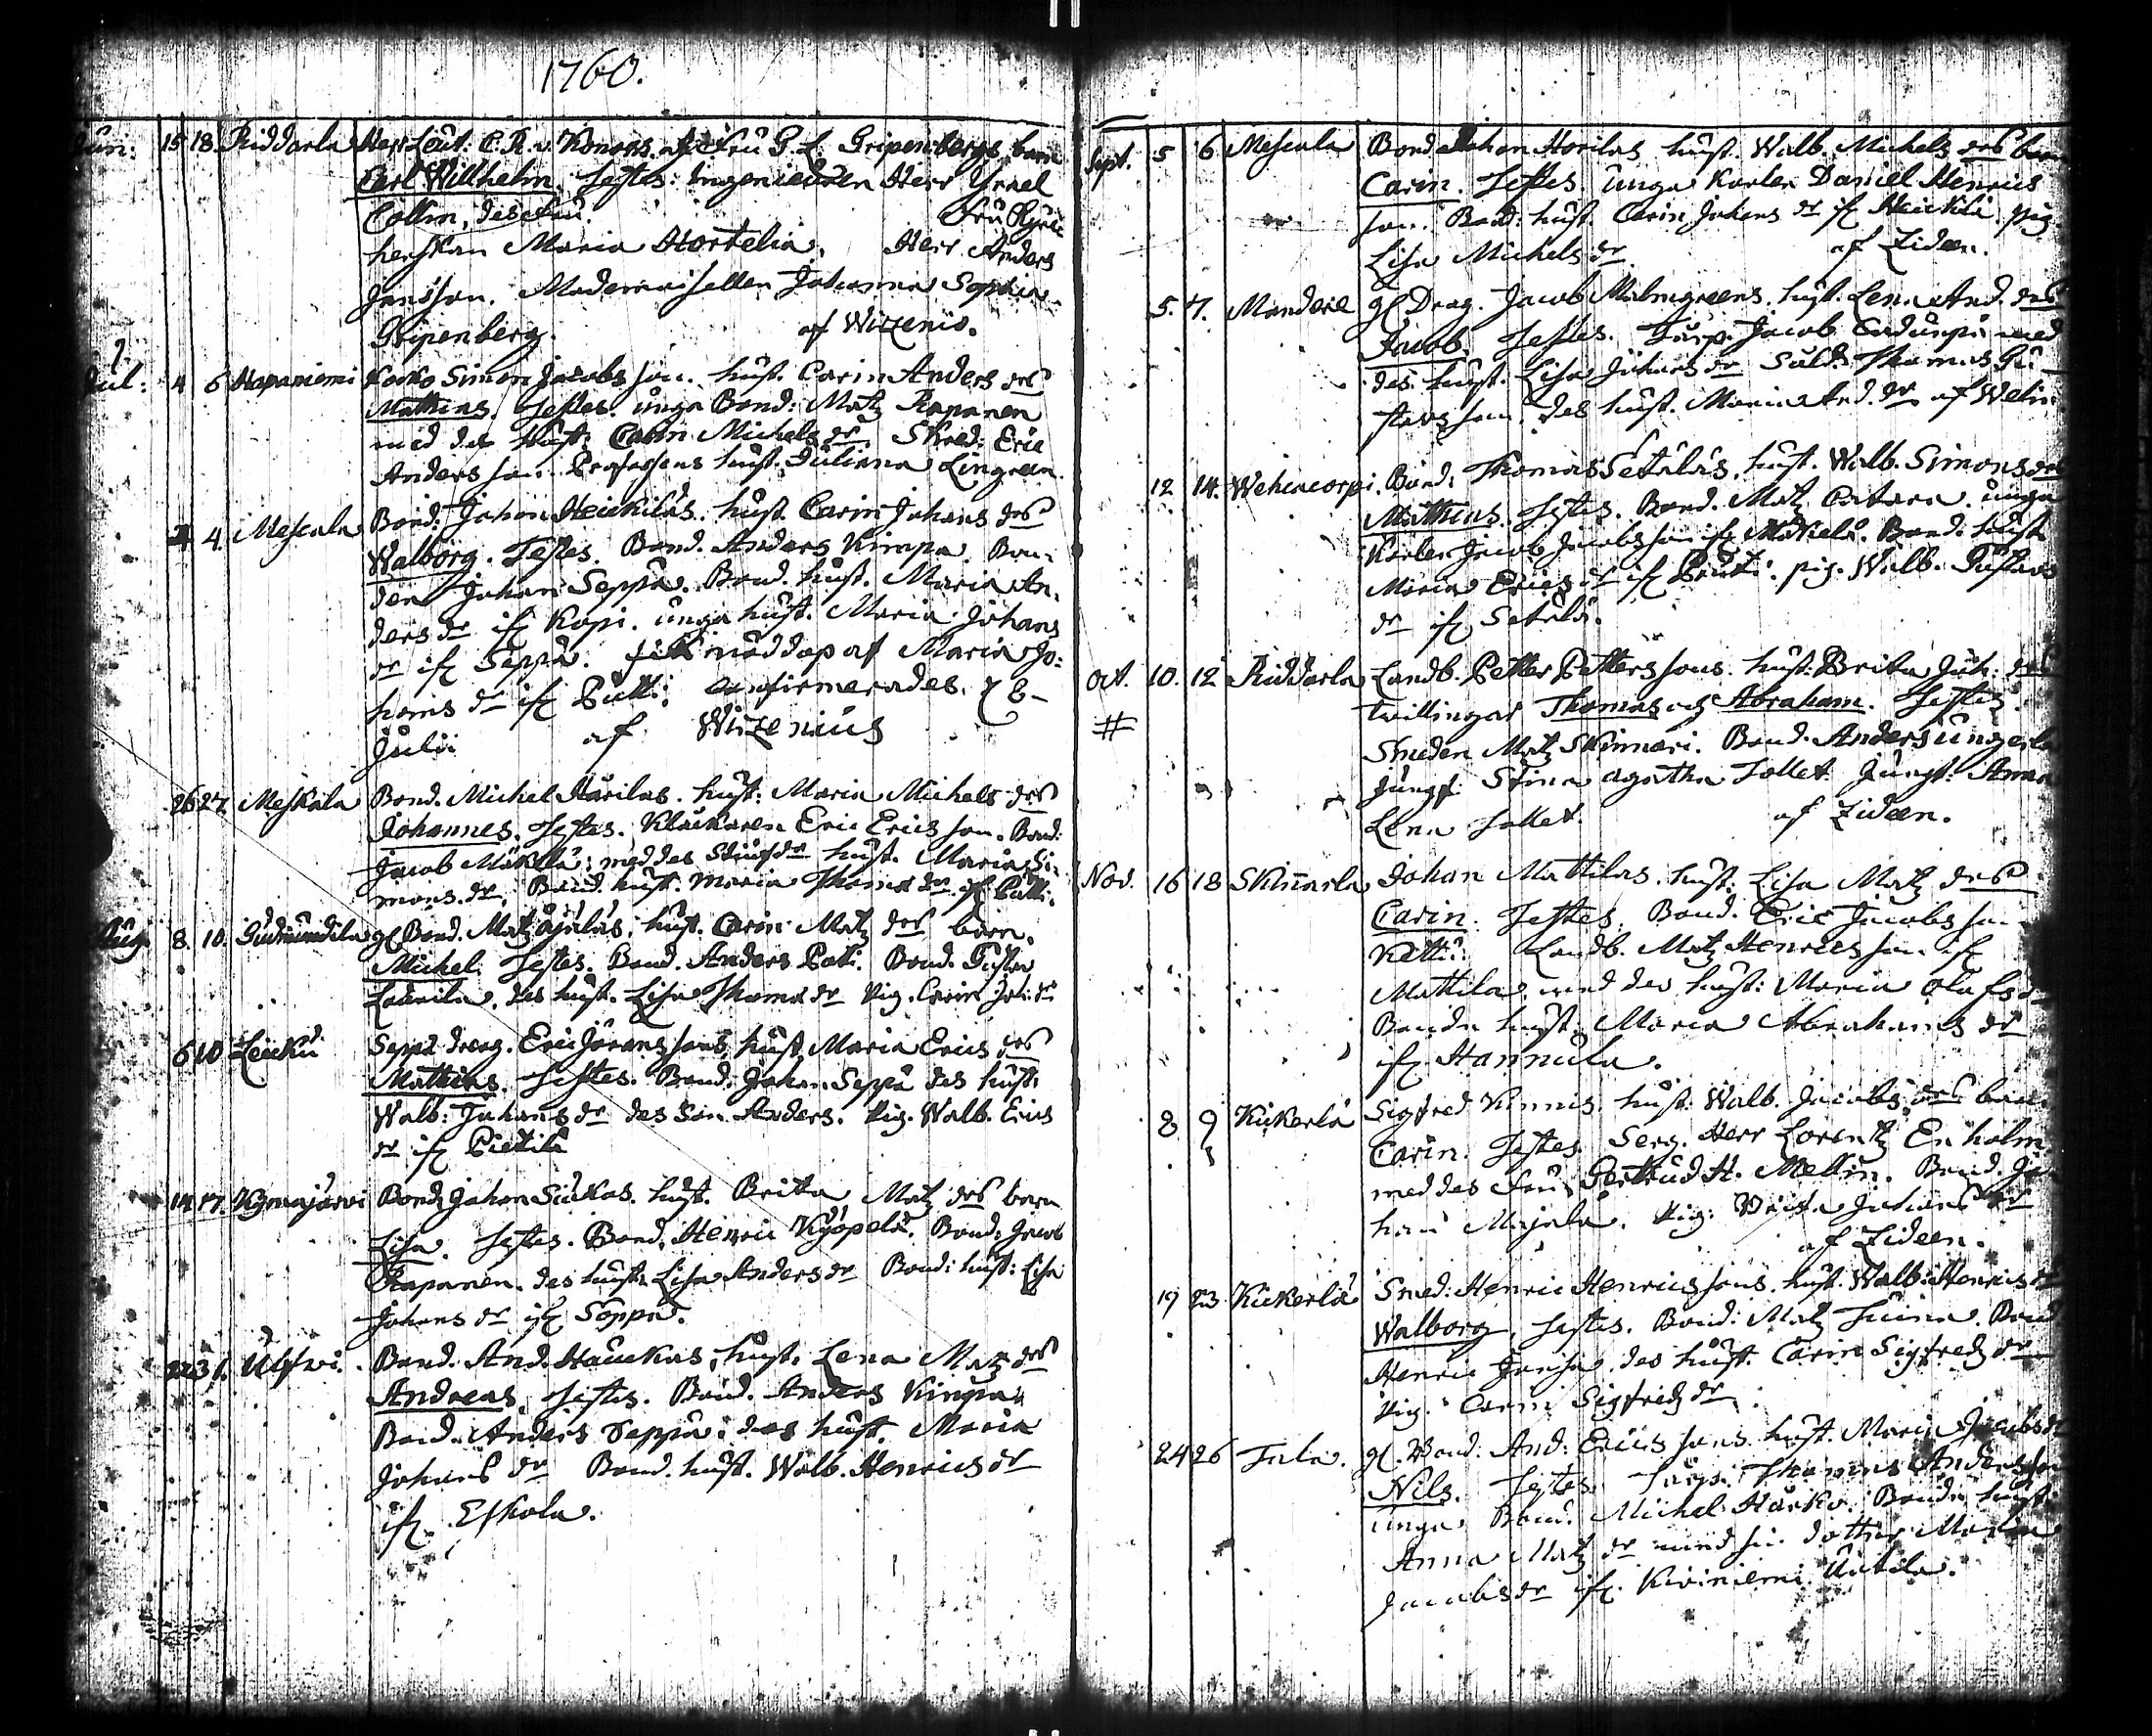 1760.
Juni: 15 18. Riddarla Herr Leut. C. R. v. Konows och Fru G. L. Gripenbergs barn
Carl Willhelm. Testes: Ingenieuren Herr Israel
Collin, des Fru. Fru Ryttmästar
herskan Maria Hortelia. Herr Anders
Jansson. Mademoisellen Johanna Sophia
Gripenberg. af Wizenio.
Jul: 4 6 Hapaniemi Koko Simon Jacobs son. hust. Carin Anders drs
Mathias. Testes. unga Bond: Matz Rapanen
med des Hust: Carin Michels dr. Skred: Eric
Anders son. Profossens hust. Juliana Lingreen.
4. Mescala Bond: Johan Heickiläs. hust. Carin Johans drs
Walborg. Testes. Bond. Anders Kimpa. Bon-
den Johan Seppä. Bond. hust. Maria An-
ders dr if Kopi. unga hust. Maria Johans
dr if Seppä. fick nöddop af Maria Jo-
hans dr if Putti; confirmerades. d 8
Julii af Wizenius
26 27. Meskala Bond. Michel Harilas. hust: Maria Michels drs
Johannes. Testes. Klåckaren Eric Erics son. Bond:
Jacob Mäkelä; med des hust. Maria Si-
mons dr. Bond. hust. Maria Thomæ dr if Putti.
Aug. 8. 10. Gudmundila gl Bond. Matz Ojalas, hust. Carin Matz drs barn,
Michel. Testes. Bond. Anders Patti. Bond. Gustav
Laurila. des hust. Lisa Thomæ dr Pig. Carin Joh: dr
6 10 Leucku Seppä dreng. Eric Jörans sons, hust. Maria Erics drs
Mathias. Testes. Bond. Johan Seppä des hust:
Walb: Johans dr des son Anders. Pig. Walb. Erics
dr if Pietilä
14 17. Kymajärvi Bond: Johan Siukas. hust. Britta Matz drs barn
Lisa. Testes. Bond. Henric Kyöpelä. Bond. Jacob
Rapanen. des hust: Lisa Anders dr Bond: hust: Lisa
Johans dr if Soppa.
31. Ulfsvi. Bond. And. Hauckas, hust. Lena Matz drs
Andreas, Testes. Bond. Anders Kimpa
Bond. Anders Seppä: des hust. Maria
Johans dr Bond. hust. Walb. Henrics dr
if Eskola.
Sept. 5 6 Mescala Bond Johan Horilas hust. Walb. Michels drs barn
Carin. Testes. unga Karlen Daniel Henrics
son. Bond: hust. Carin Johans dr if Heickilä. pig.
Lisa Michels dr. af Zideen.
5. 7. Mandere gl Drag. Jacob Malmgreens. hust. Lena And. drs
Jacob. Testes. Jacob med
des hust. Lisa Johans dr Sold. Thomas Gu-
stavs son, des hust. Maria And. dr af
12 14. Wehencorpi. Bond: Thomas Setäläs. hust. Walb. Simons drs
Mathias. Testes. Bond. Matz unga
Karlen Jacob Jacobs son if Mäkelä. Bond: hust.
Maria Erics dr if Pentti. pig. Walb. Gustavs
dr if Setälä.
Oct. 10. 12 Riddarla Landb. Petter Petters sons. hust: Brita Joh: drs
twillingar Thomas och Abraham. Testes.
# Smeden Matz Skinnari. Bond. Anders
Jungf: Stina Agatha Tollet. Jungf: Anna
Lena Tollet. af Zideen.
Nov. 16 18 Skinarla Johan Mattilas. hust: Lisa Matz drs
Carin. Testes. Bond. Eric Jacobs son
Landb. Matz Henrics son if
Mattila. med des hust: Maria Olafs dr
Bonde hust. Maria Abrahams dr
if Hannula.
8 9 Kickerlä Sigfred Kinnis. hust: Walb. Jacobs drs barn
Carin. Testes. Serg. Herr Lorentz Enholm
med des Fru Gertrud H. Mellin. Bond. Jo-
han Majala. Pig: Brita Johans dr
af Zideen.
19 23. Kickerlä Smed: Henric Henrics sons. hust. Walb: Henrics dr
Walborg, Testes. Bond: Matz Bond
Henric des hust. Carin Sigfreds dr
Pig. Carin Sigfreds dr.
24 26 Tala. gl. Bond: And: Erics sons hust. Maria Jacobs dr
Nils. Testes. Thomas Anders son
unga Bond. Michel Harko. Bonde hust
Anna Matz dr med sin dotter Maria
Jacobs dr if. Kiviniemi Uutila.